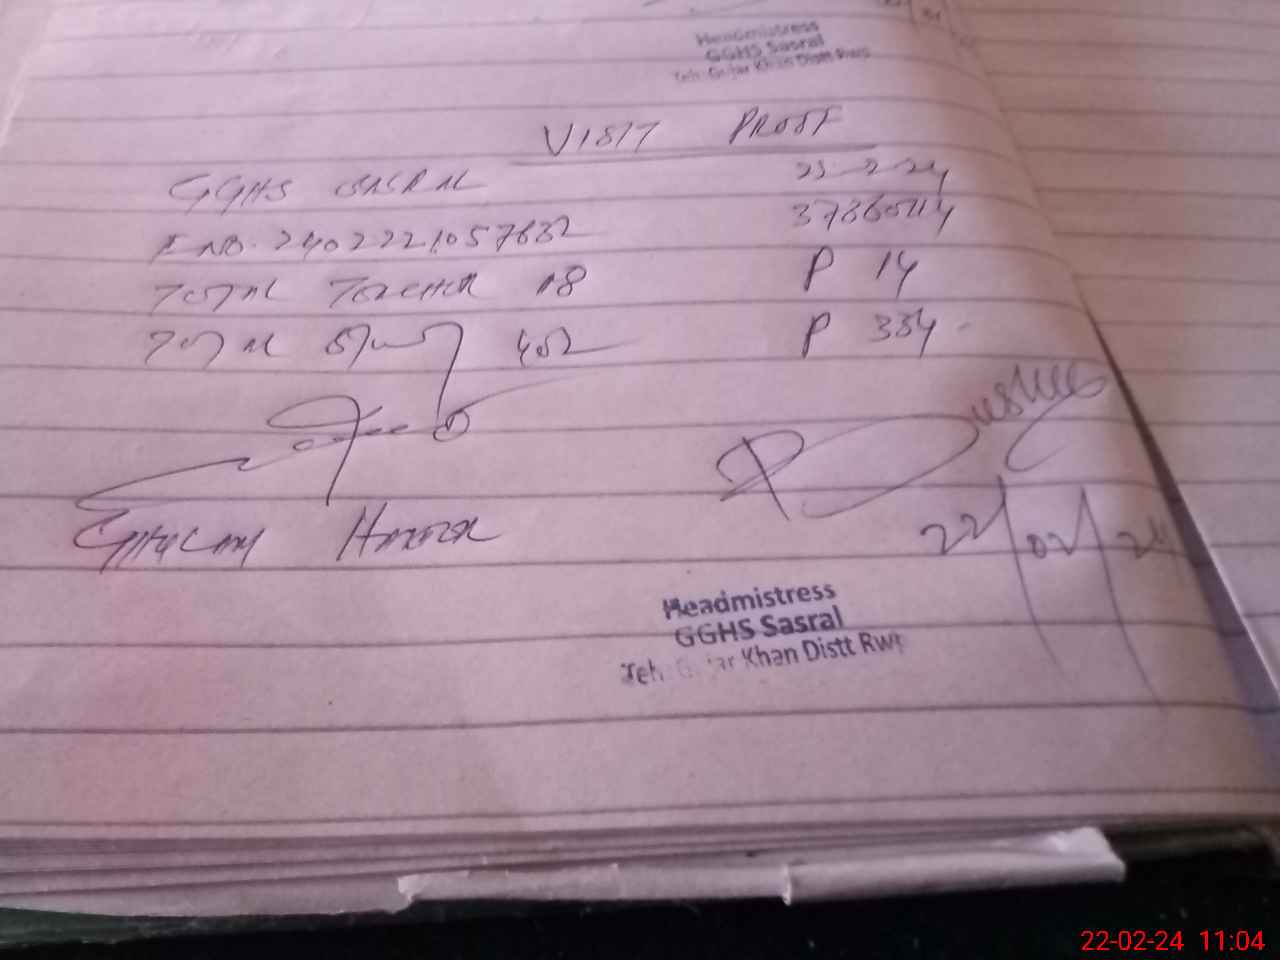 Headmistress
GGHS Sasral
Teh: Gujar Khan Distt Rwp
VISIT PROOF
GGHS SASRAL
22-2-24
F NO. 2402221057632
TOTAL TEACHER 18
P 14
TOTAL 402
P 334
GHULAM
22/02/24
Headmistress
GGHS Sasral
Teh: Gujar Khan Distt Rwp
22-02-24 11:04